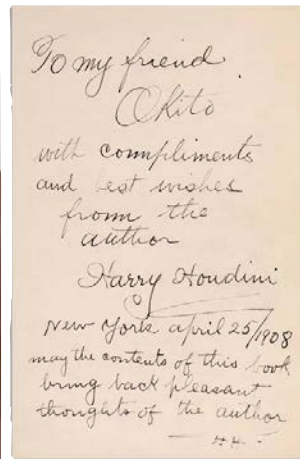 To my friend
Okito
with compliments
and best wishes
from the
author
Harry Houdini
New York april 25/1908
may the contents of this book
bring back pleasant
thoughts of the author
H.H.